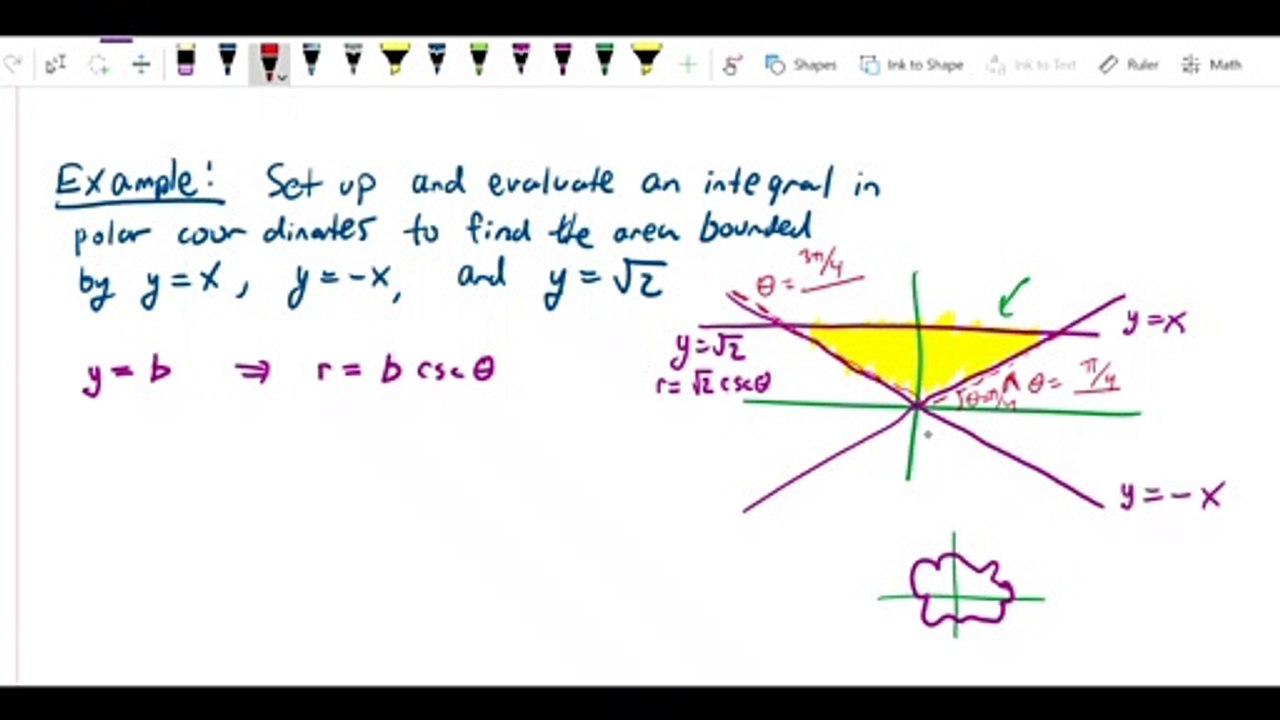 Shapes Ink to Shape Ink to Text Ruler Math
Example: Set up and evaluate an integral in
polar coordinates to find the area bounded
by y = x, y = -x, and y = √2
y = b ⇒ r = b csc θ
θ = 3π/4
y = x
y = √2
r = √2 csc θ
θ = π/4
θ = π/4
y = - x